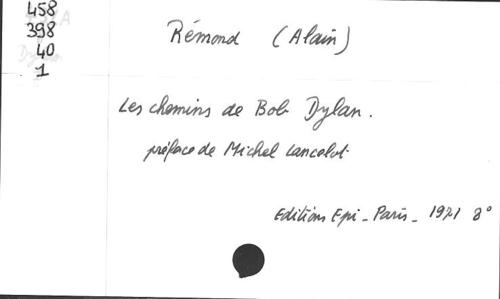 458
398
40
1
Rémond (Alain)
Les chemins de Bob Dylan.
préface de Michel Lancelot
Editions Epi - Paris - 1971 8°